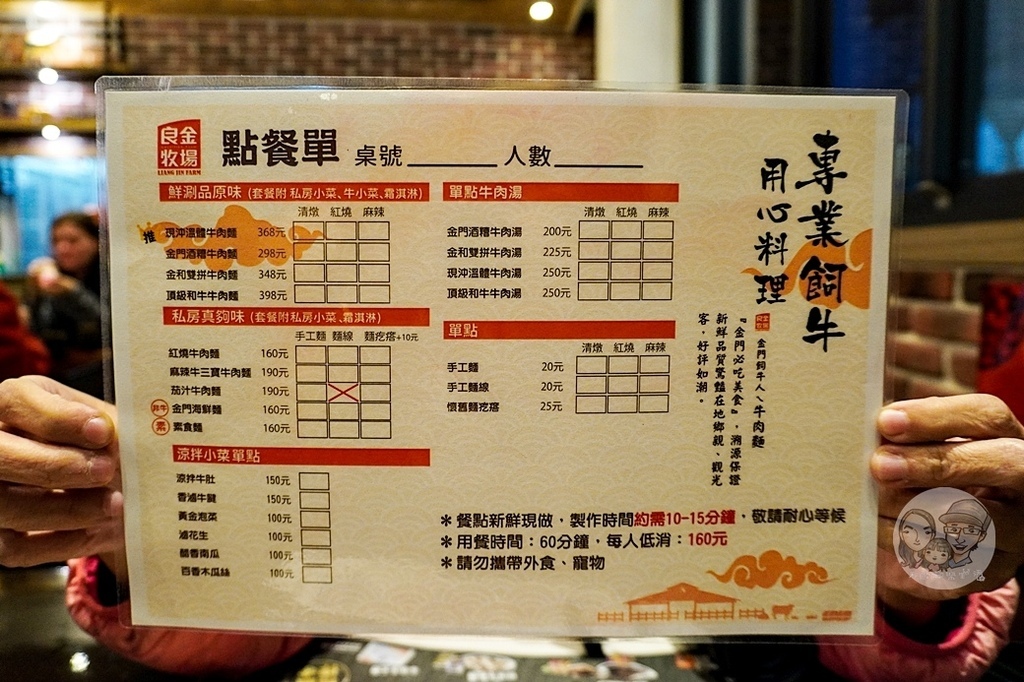 良金
牧場
LIANG JIN FARM
點餐單 桌號______ 人數______
鮮涮品原味 (套餐附 私房小菜、牛小菜、霜淇淋)
清燉 紅燒 麻辣
推 現沖溫體牛肉麵 368元
金門酒糟牛肉麵 298元
金和雙拼牛肉麵 348元
頂級和牛牛肉麵 398元
私房真夠味 (套餐附 私房小菜、霜淇淋)
手工麵 麵線 麵疙瘩+10元
紅燒牛肉麵 160元
麻辣牛三寶牛肉麵 190元
茄汁牛肉麵 190元
非牛 金門海鮮麵 160元
素 素食麵 160元
涼拌小菜單點
涼拌牛肚 150元
香滷牛腱 150元
黃金泡菜 100元
滷花生 100元
醋香南瓜 100元
百香木瓜絲 100元
單點牛肉湯
清燉 紅燒 麻辣
金門酒糟牛肉湯 200元
金和雙拼牛肉湯 225元
現沖溫體牛肉湯 250元
頂級和牛牛肉湯 250元
單點
清燉 紅燒 麻辣
手工麵 20元
手工麵線 20元
懷舊麵疙瘩 25元
專業飼牛
用心料理
良金牧場 金門飼牛人ㄟ牛肉麵
『金門必吃美食』，溯源保證
新鮮品質驚豔在地鄉親、觀光
客，好評如潮。
＊餐點新鮮現做，製作時間約需10-15分鐘，敬請耐心等候
＊用餐時間：60分鐘，每人低消：160元
＊請勿攜帶外食、寵物